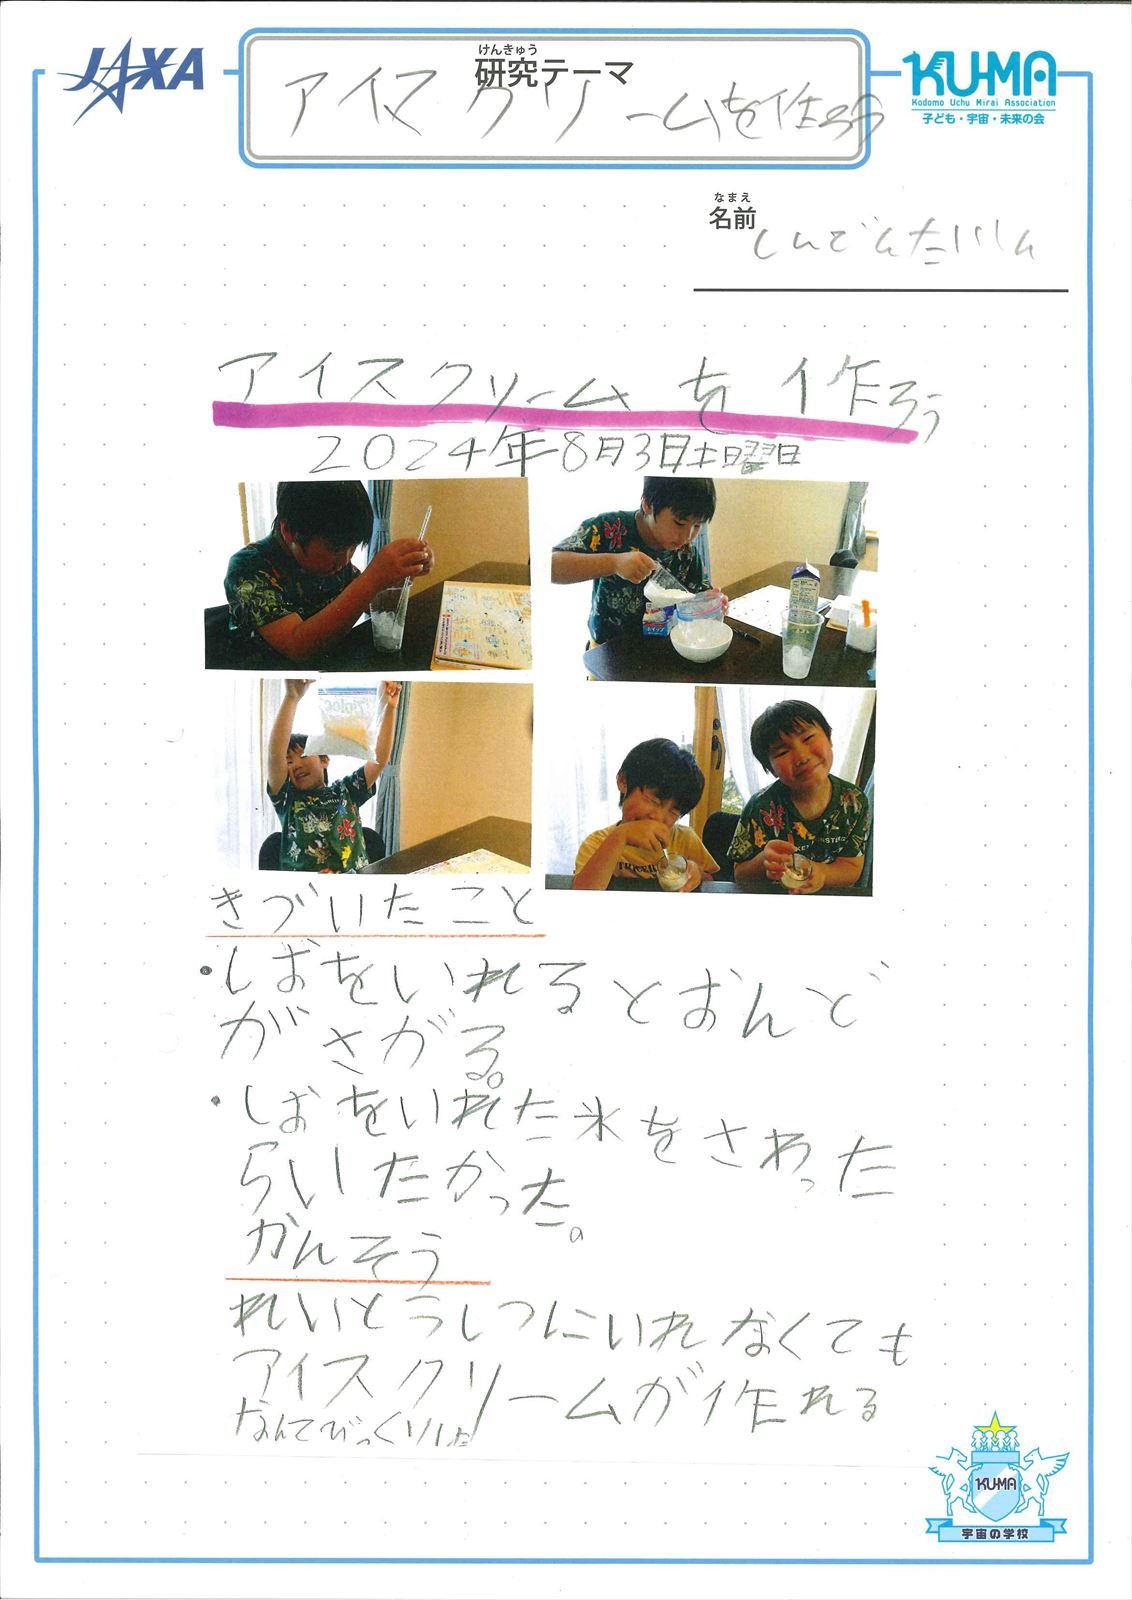 JAXA
けんきゅう
研究テーマ
アイスクリームを作ろう
KUMA
Kodomo Uchu Mirai Association
子ども・宇宙・未来の会
なまえ
名前
アイスクリームを作ろう
2024年8月3日土曜日
Ziploc
きづいたこと
・しおをいれるとおんど
がさがる。
・しおをいれた氷をさわった
らいたかった。
かんそう
れいとうしつにいれなくても
アイスクリームが作れる
なんてびっくりした
KUMA
宇宙の学校